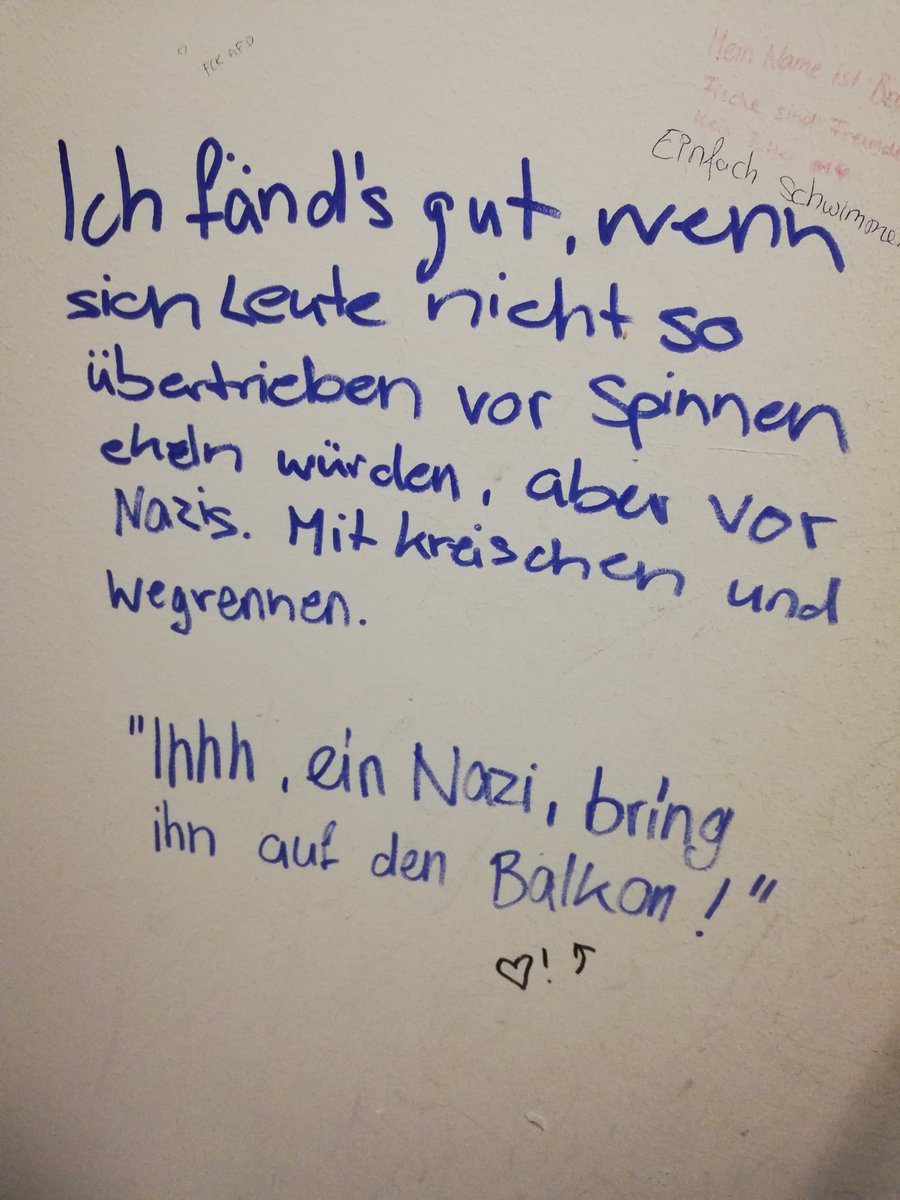 FCK AFD
Mein Name ist
Fische sind Freunde
kein
Einfach schwimmen
Ich fänd's gut, wenn
sich Leute nicht so
übertrieben vor Spinnen
ekeln würden, aber vor
Nazis. Mit kreischen und
wegrennen.
"Ihhh, ein Nazi, bring
ihn auf den Balkon!"
♡! ↑